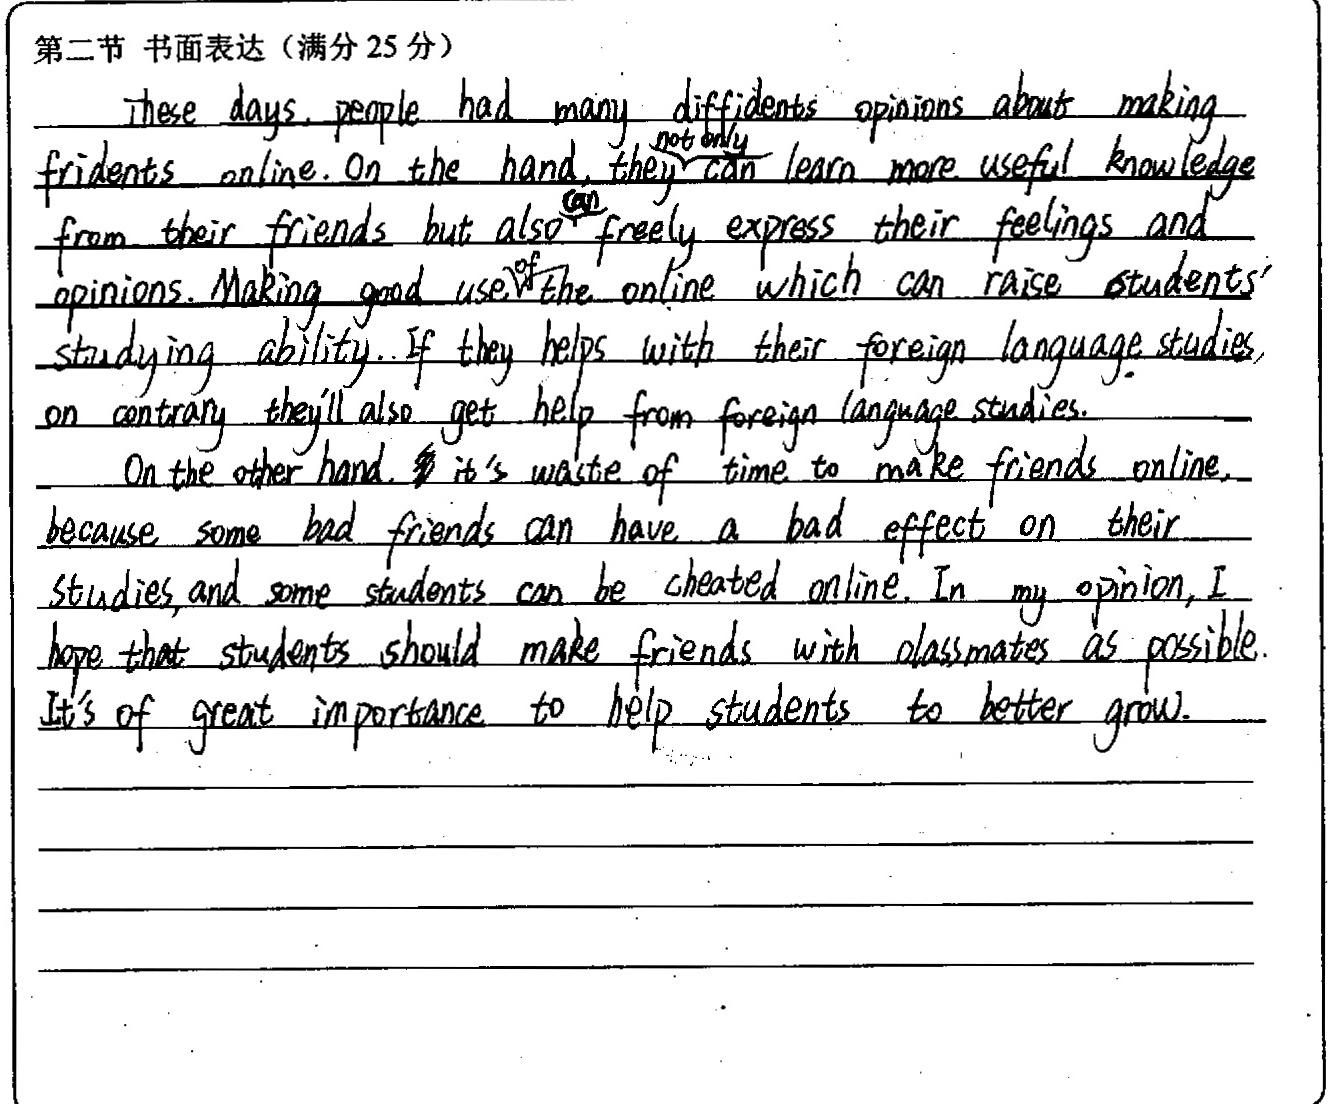 第二节 书面表达（满分 25 分）
These days, people had many diffidents opinions about making
fridents online. On the hand, they not only can learn more useful knowledge
from their friends but also can freely express their feelings and
opinions. Making good use of the online which can raise students'
studying ability. If they helps with their foreign language studies,
on contrary they'll also get help from foreign language studies.
On the other hand. it's waste of time to make friends online,
because some bad friends can have a bad effect on their
studies, and some students can be cheated online. In my opinion, I
hope that students should make friends with classmates as possible.
It's of great importance to help students to better grow.